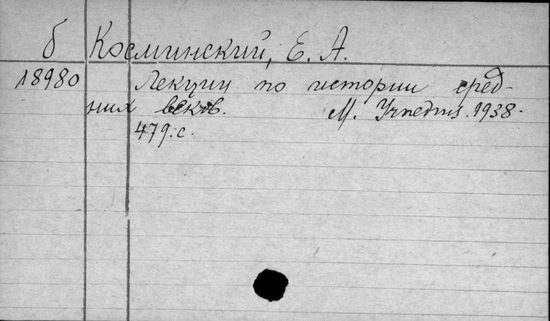 б Косминский, Е. А.
18980 Лекции по истории сред-
них веков. М. Учпедгиз. 1938.
479. с.